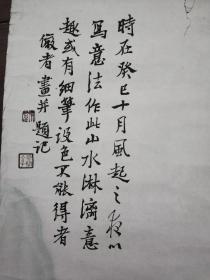 時在癸巳十月風起之夜以
寫意法作此山水淋漓意
趣或有細筆設色不能得者
儆者畫并題記